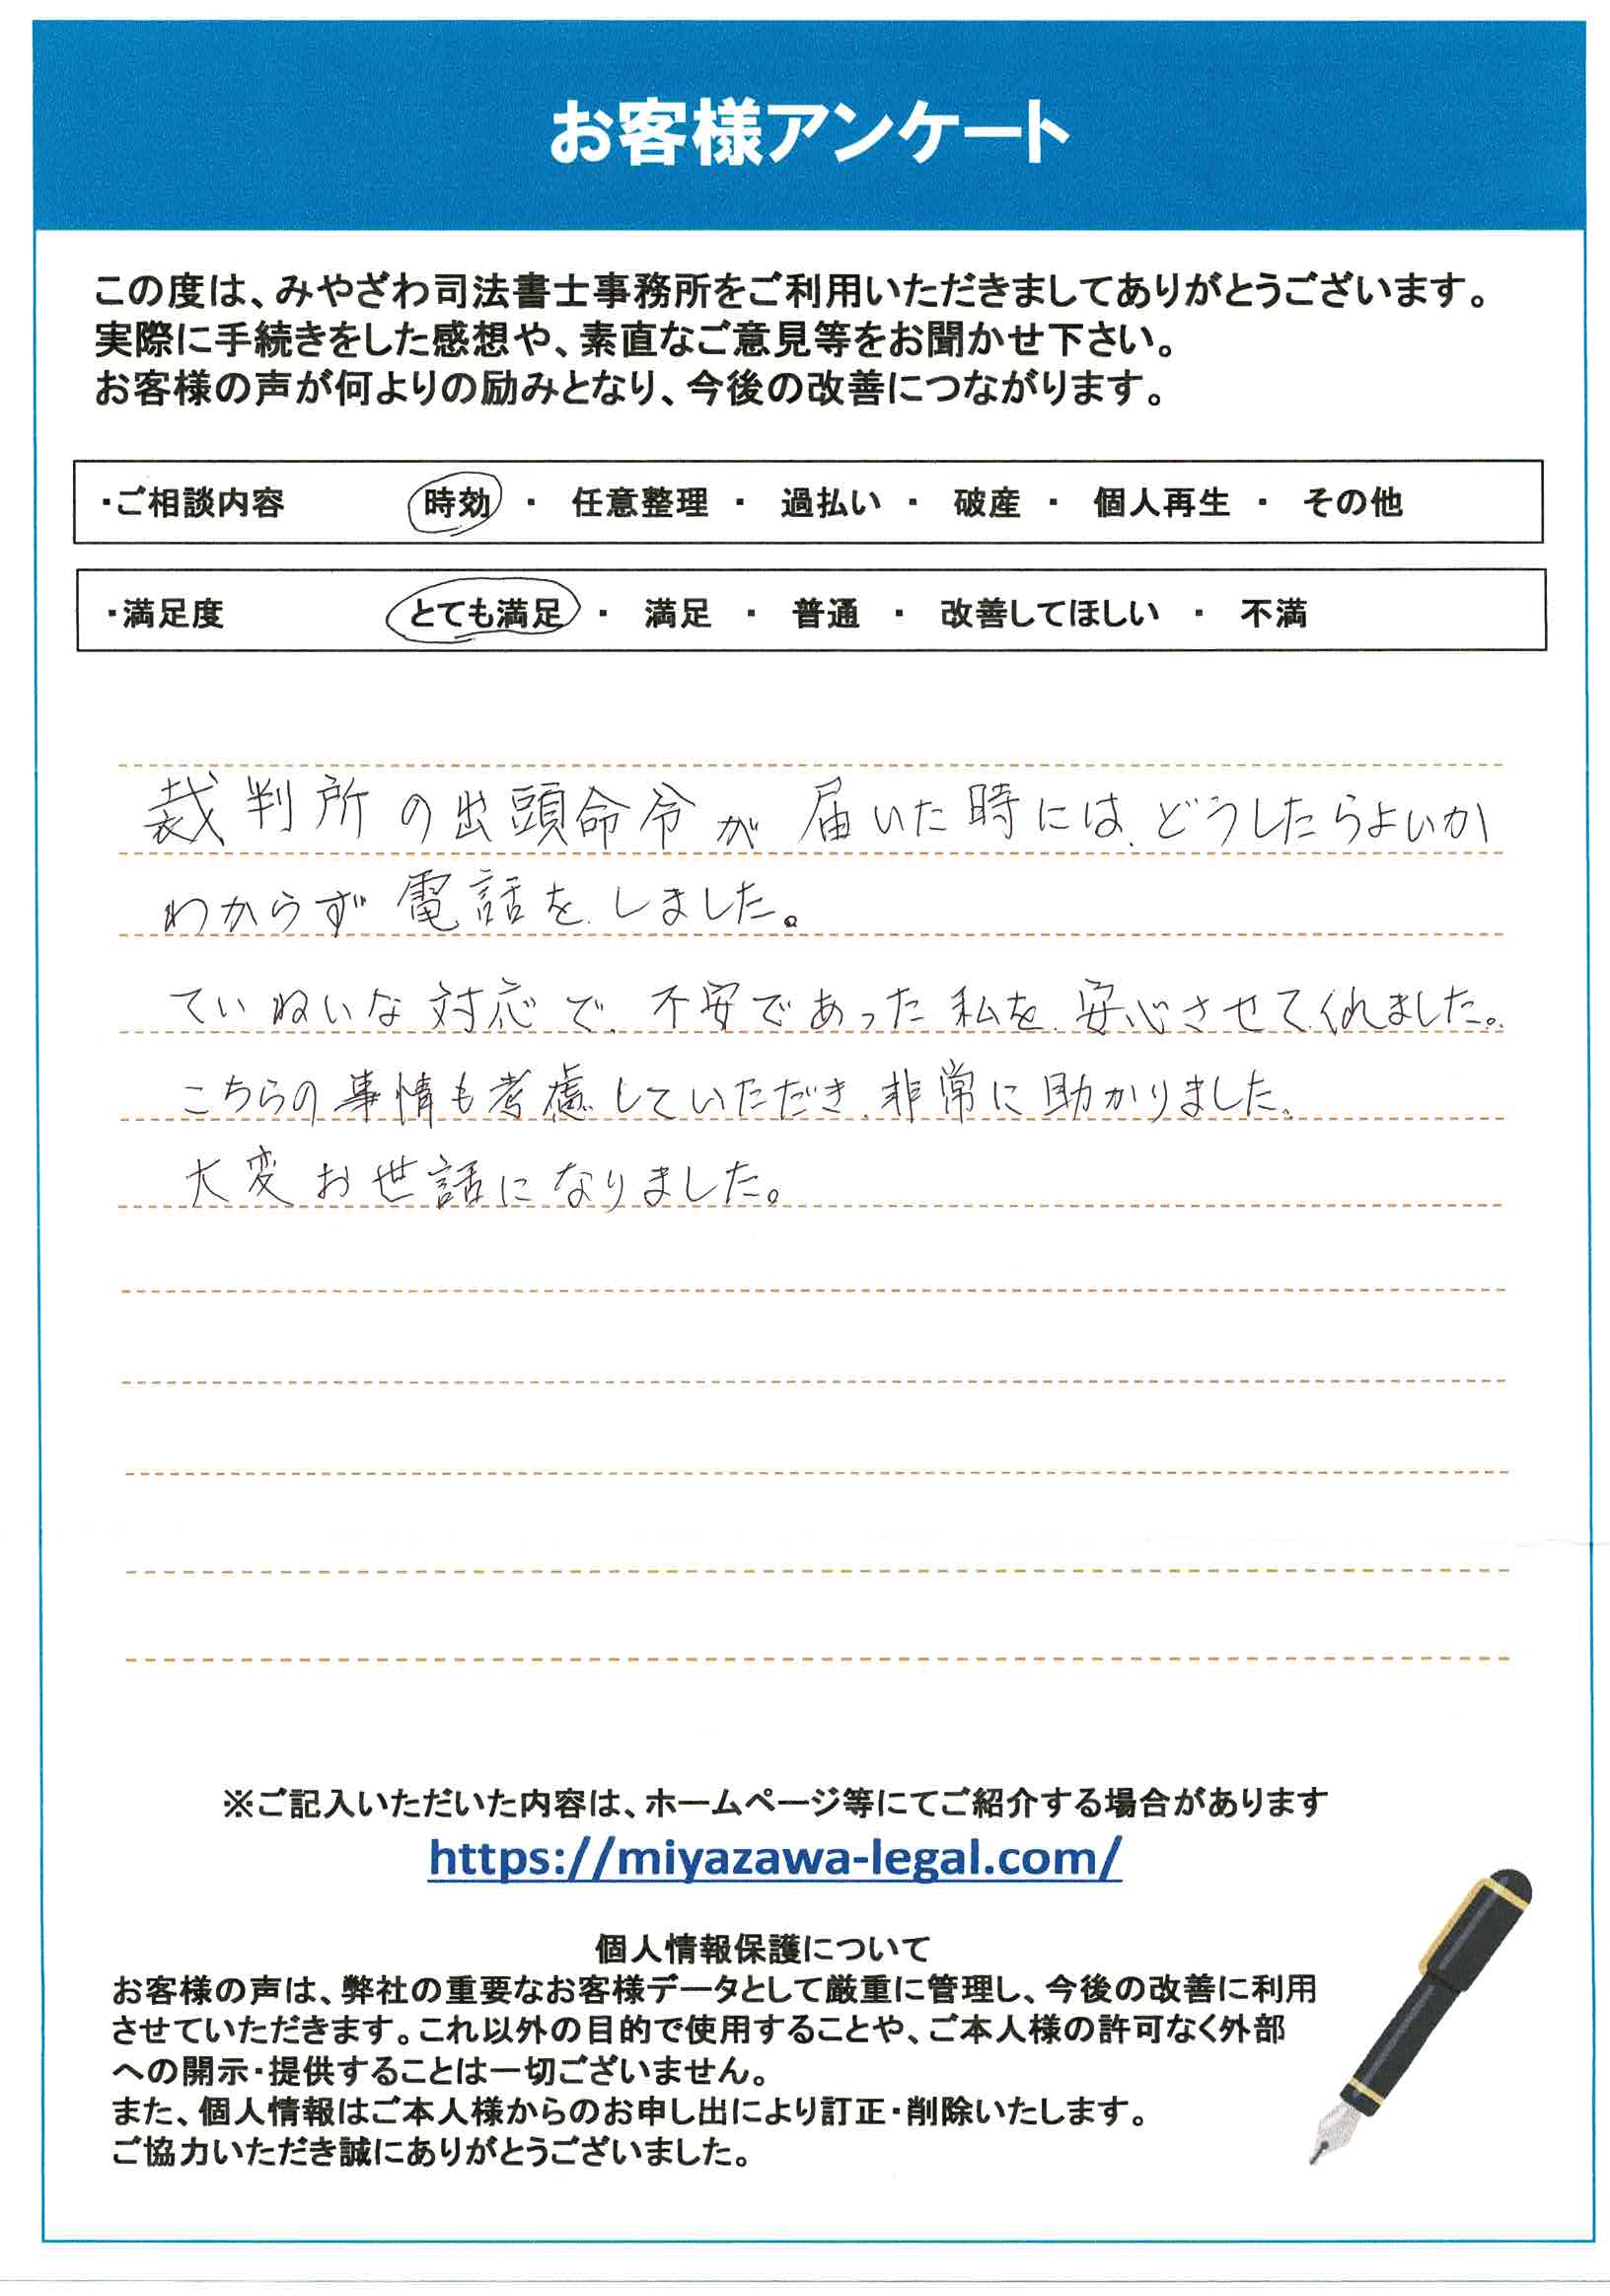 お客様アンケート
この度は、みやざわ司法書士事務所をご利用いただきましてありがとうございます。
実際に手続きをした感想や、素直なご意見等をお聞かせ下さい。
お客様の声が何よりの励みとなり、今後の改善につながります。
・ご相談内容 時効 ・ 任意整理 ・ 過払い ・ 破産 ・ 個人再生 ・ その他
・満足度 とても満足 ・ 満足 ・ 普通 ・ 改善してほしい ・ 不満
裁判所の出頭命令が届いた時には、どうしたらよいか
わからず電話をしました。
ていねいな対応で、不安であった私を安心させてくれました。
こちらの事情も考慮していただき、非常に助かりました。
大変お世話になりました。
※ご記入いただいた内容は、ホームページ等にてご紹介する場合があります
https://miyazawa-legal.com/
個人情報保護について
お客様の声は、弊社の重要なお客様データとして厳重に管理し、今後の改善に利用
させていただきます。これ以外の目的で使用することや、ご本人様の許可なく外部
への開示・提供することは一切ございません。
また、個人情報はご本人様からのお申し出により訂正・削除いたします。
ご協力いただき誠にありがとうございました。